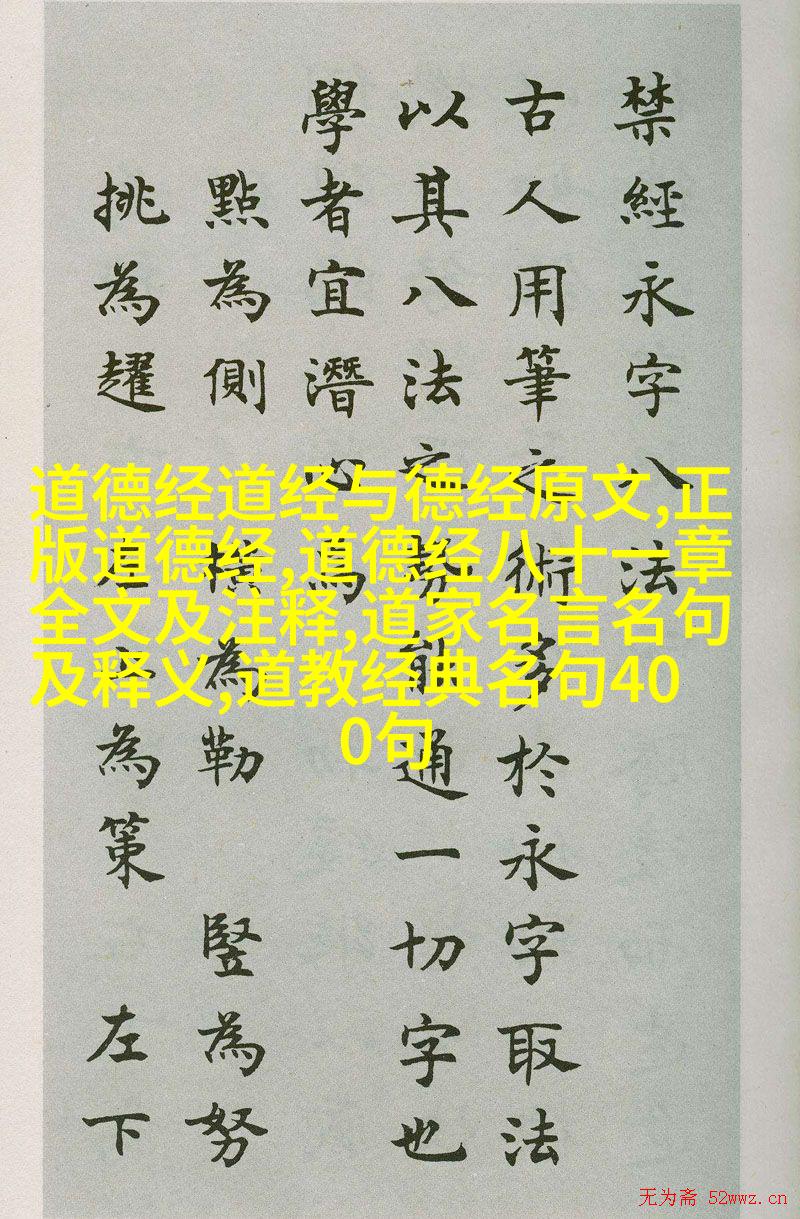 禁經永字八法
古人用筆之術多於永字取法
以其八法之勢能通一切字也
學者宜潛心焉
點為側 橫為勒 竪為努
挑為趯 左上為策 左下
道德经道经与德经原文,正
版道德经,道德经八十一章
全文及注释,道家名言名句
及释义,道教经典名句40
0句
无为斋 52wwz.cn